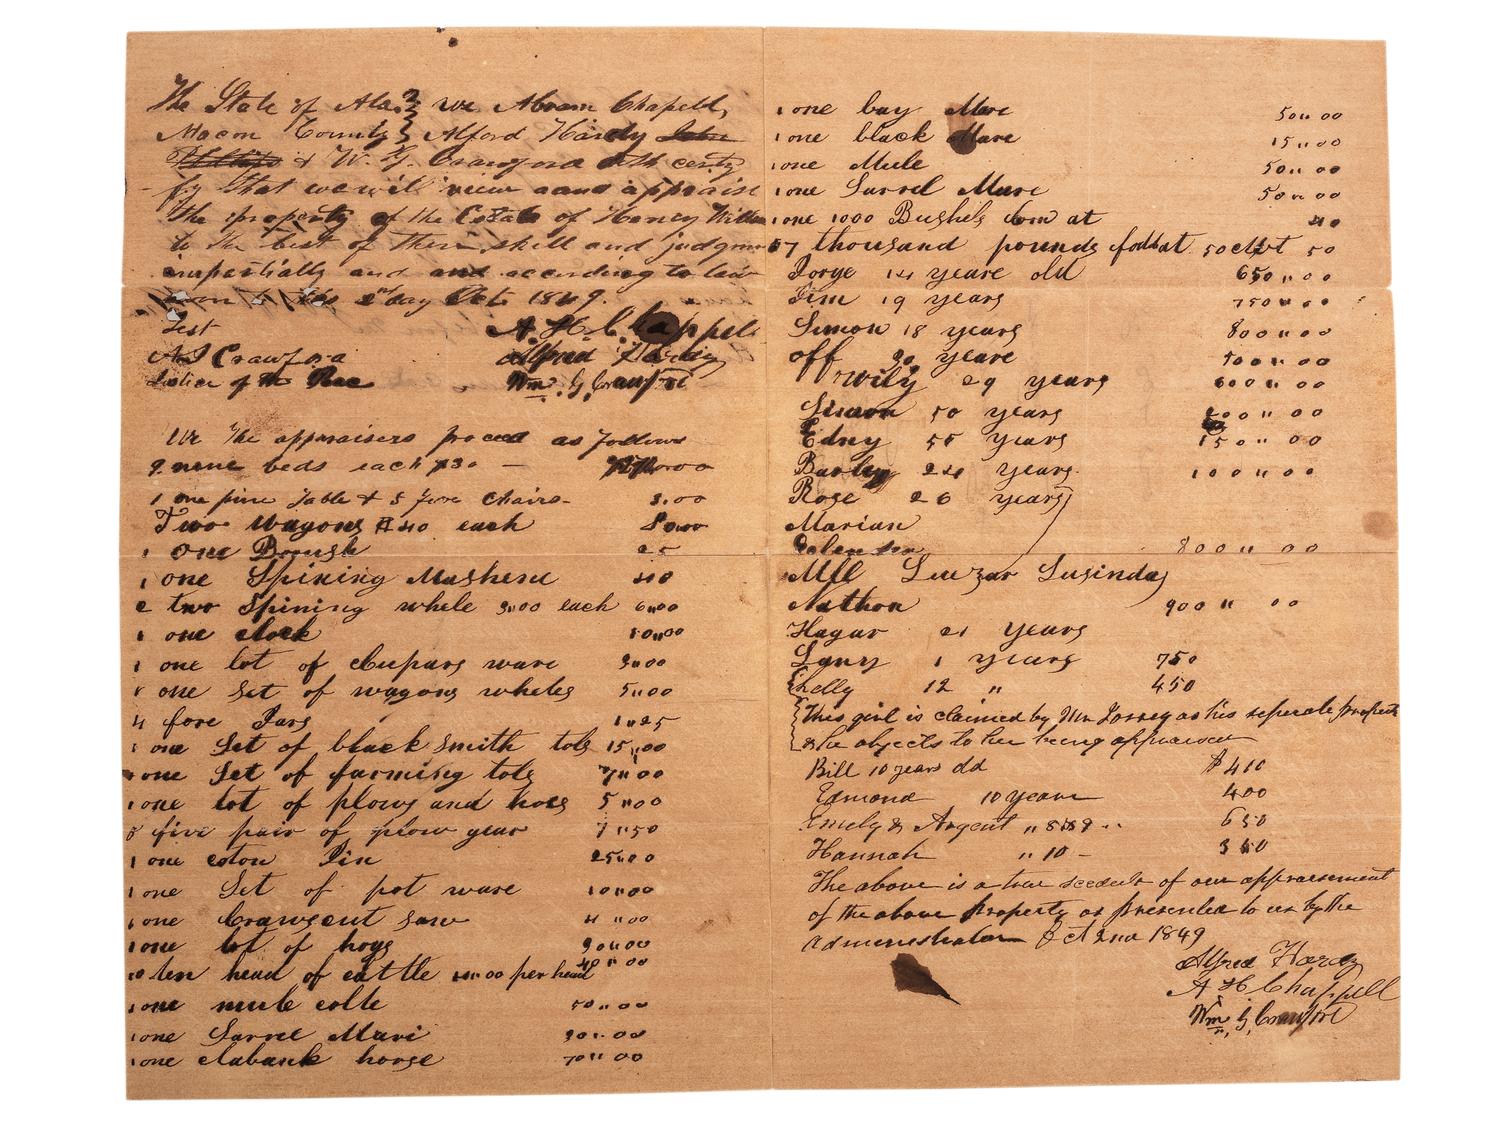 The State of Ala. } We Abram Chapell,
Macon County } Alford Hardy John
Phillips & W. G. Crawford doth certy
fy that we will view aand appraise
the property of the Estate of Henry
to the best of their skill and judgmen
impartially and and according to law
this 2nd day Oct. 1849.
Test A. H. Chappell
A J Crawford Alfred Hardy
Justice of the Peac Wm. G. Crawford
We the appraisers proceed as follows
9 nine beds each $30 —
1 one pine Table & 5 five Chairs - 3.00
Two Wagons $40 each 80.00
1 one 25
1 one Spining Mashene 40
2 two Spining whele 3.00 each 6.00
1 one clock 10.00
1 one lot of cupars ware 3.00
1 one Set of wagons wheles 5.00
4 fore Jars 1.25
1 one Set of black smith tols 15.00
1 one Set of farming tols 7.00
1 one lot of plows and hoes 5.00
5 five pair of plow gear 7.50
1 one coton Jin 25.00
1 one Set of pot ware 10.00
1 one Crawscut saw 4.00
1 one lot of hogs 90.00
10 ten head of cattle per head 40.00
1 one mule colte 50.00
1 one Sorrel Mari 90.00
1 one horse 70.00
1 one bay Mare 50.00
1 one black Mare 15.00
1 one Mule 50.00
1 one Sarrel Mare 50.00
1 one 1000 Bushels Corn at 40
7 thousand pounds foddat 50 50
Jorge 14 yeare old 650.00
Jim 19 years 750.00
Simon 18 years 800.00
off 30 yeare 500.00
Wily 29 years 600.00
Simon 50 years 200.00
Edny 55 years 150.00
24 years 100.00
Rose 26 years
Marian
800.00
Mll Luezar Lusinday
Nathon 900.00
Hagar 21 Years
Lany 1 years 750
Shelly 12 " 450
This girl is claimed by Mr Dorsey as his seperate property
& he objects to her being appraised
Bill 10 years old $410
Edmond 10 years 400
Emely & Argent " 8 & 9 - - 650
Hannah " 10 -
The above is a true of our appraisement
of the above Property as presented to us by the
Administrator Oct 2nd 1849
Alfred Hardy
A H Chappell
Wm. G. Crawford